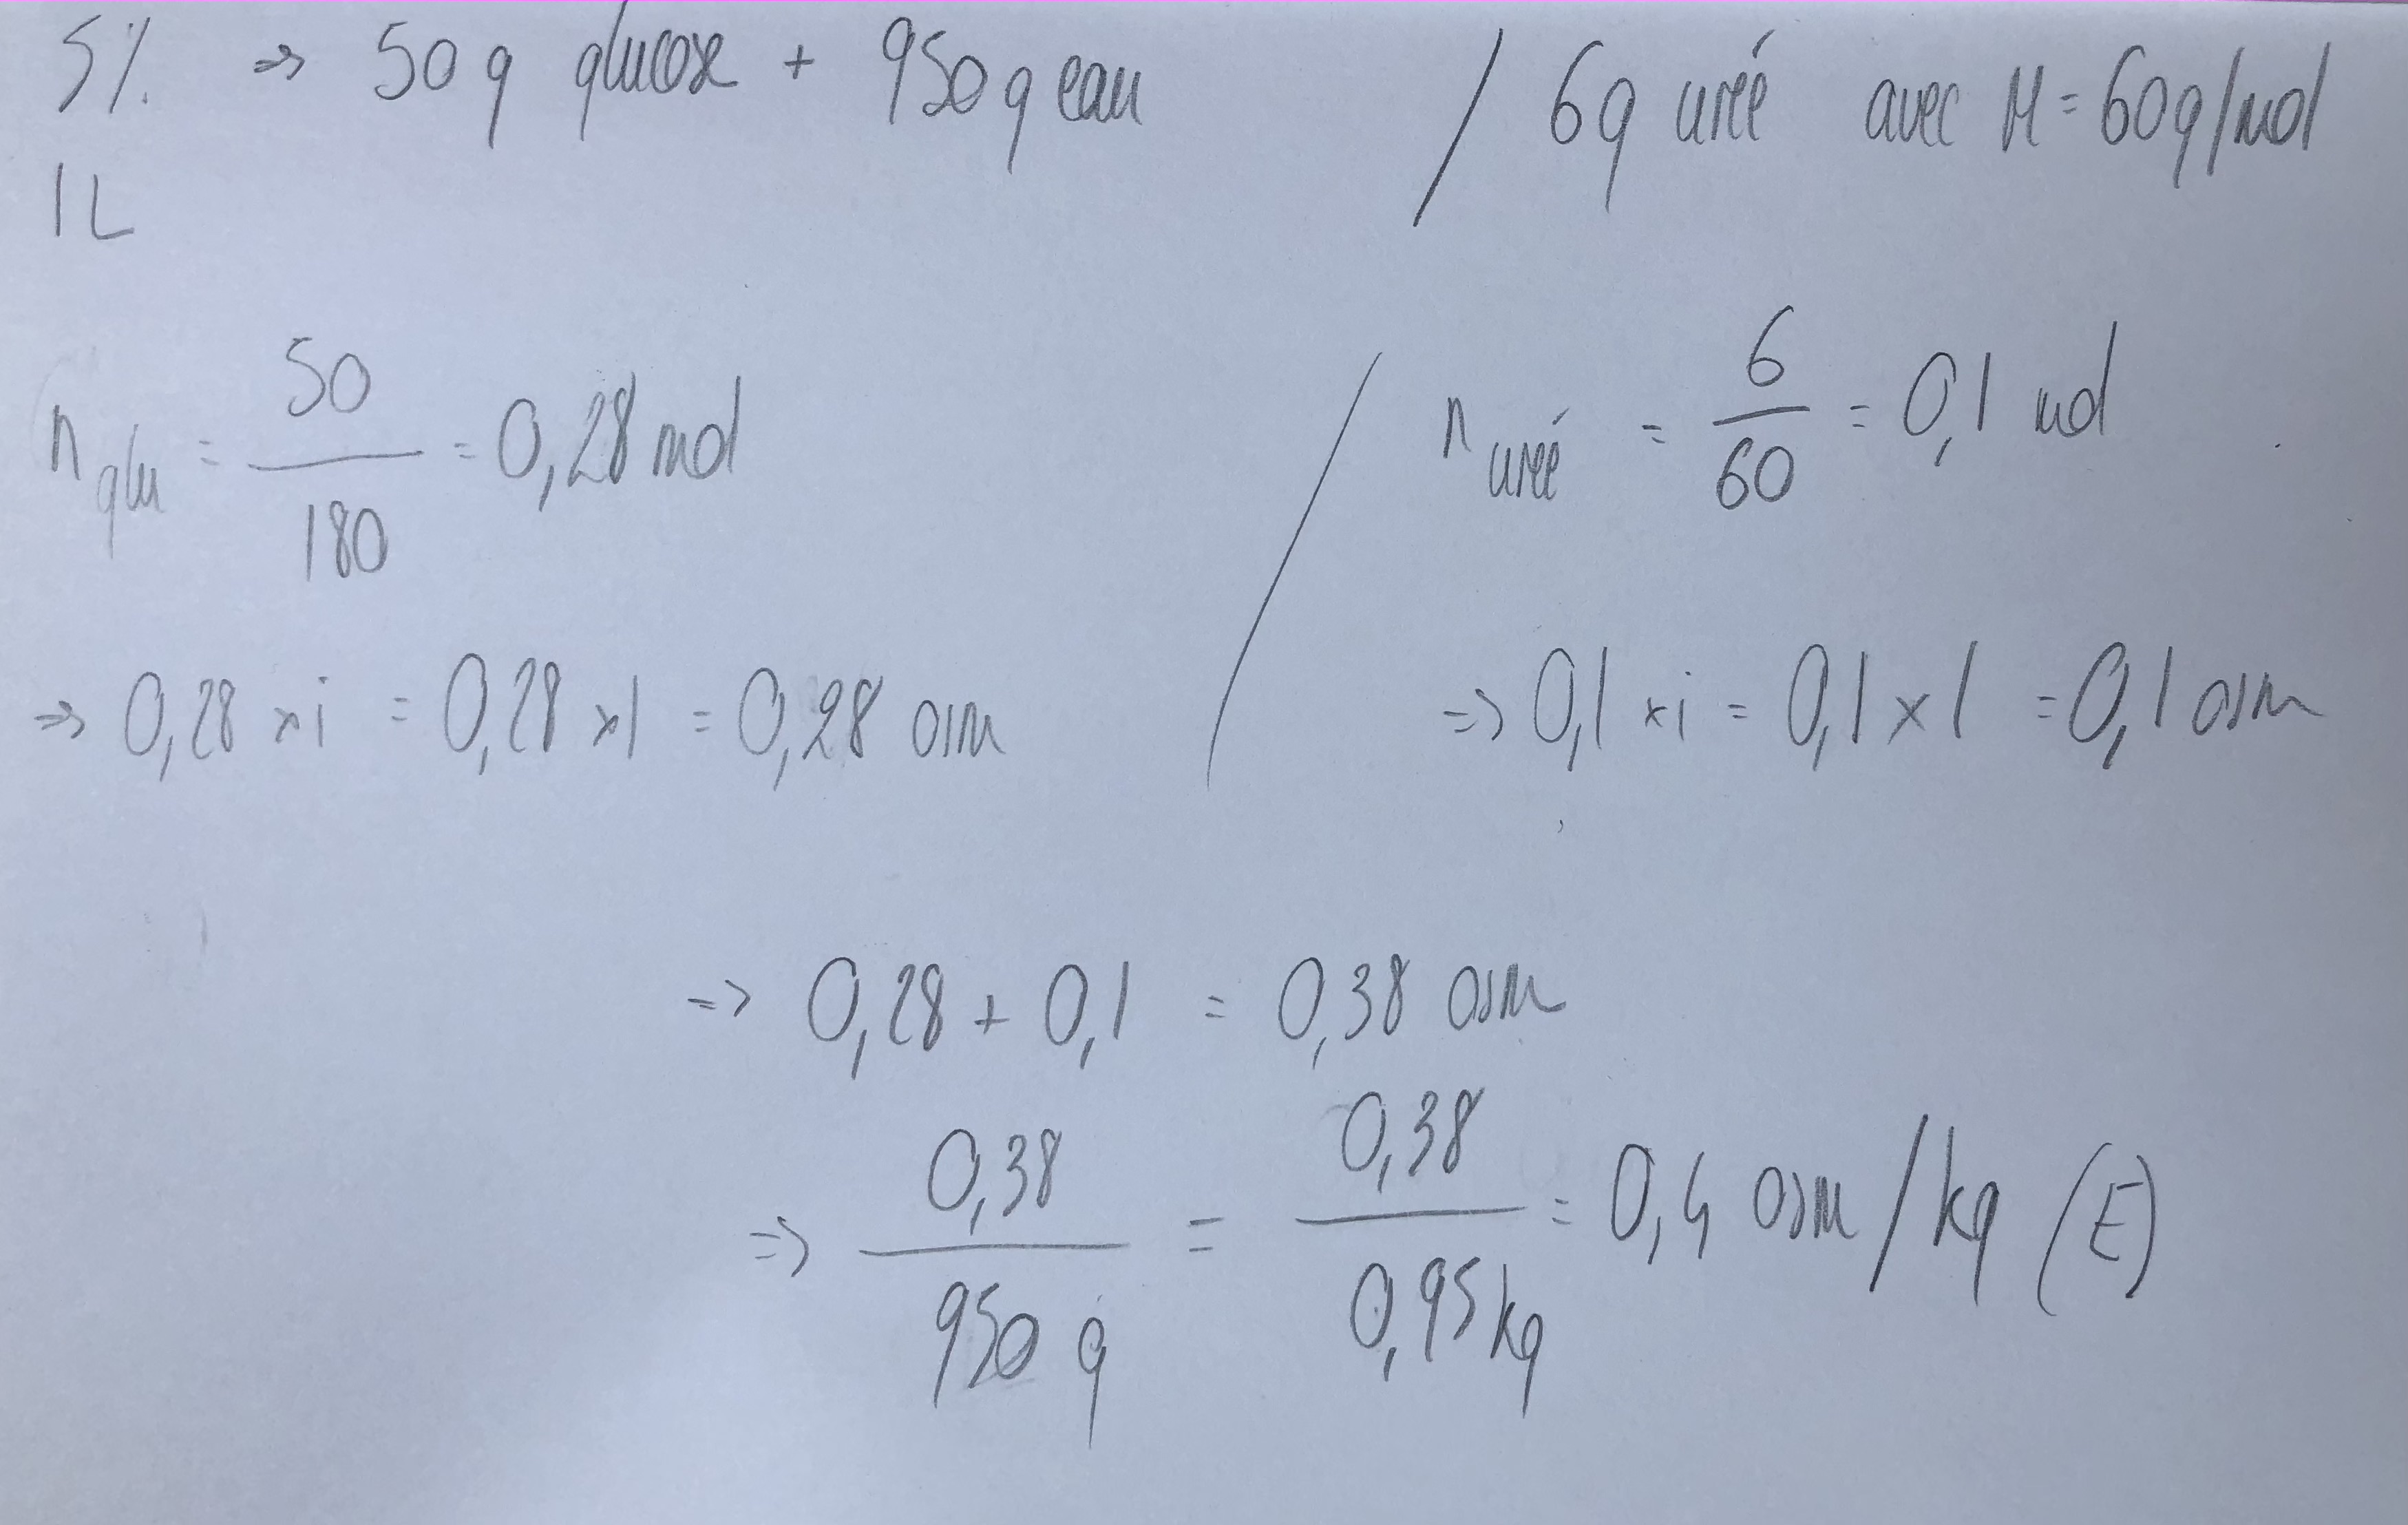 5% => 50g glucose + 950g eau / 6g uréé avec M = 60g/mol
1L
n glu = 50/180 = 0,28 mol / n uréé = 6/60 = 0,1 mol
=> 0,28 x i = 0,28 x 1 = 0,28 osm / => 0,1 x i = 0,1 x 1 = 0,1 osm
=> 0,28 + 0,1 = 0,38 osm
=> 0,38/950 g = 0,38/0,95 kg = 0,4 osm/kg (E)